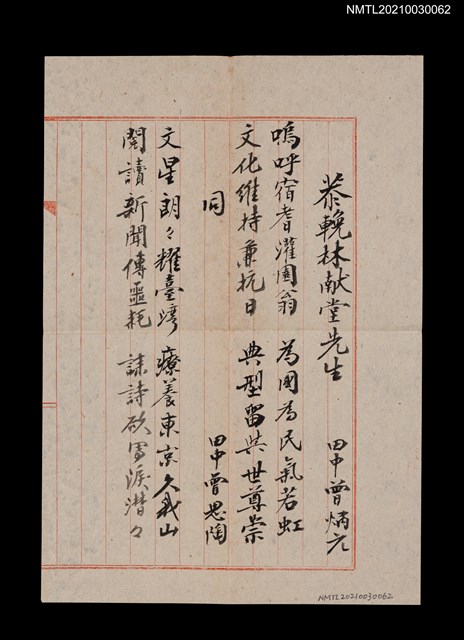 NMTL20210030062
恭輓林献堂先生 田中曾炳元
嗚呼宿耆灌園翁 為國為民氣若虹
文化維持兼抗日 典型留與世尊崇
同 田中曾思陶
文星朗々耀臺灣 療養東京久我山
閱讀新聞傳噩耗 誄詩欲寫淚潸々
NMTL20210030062